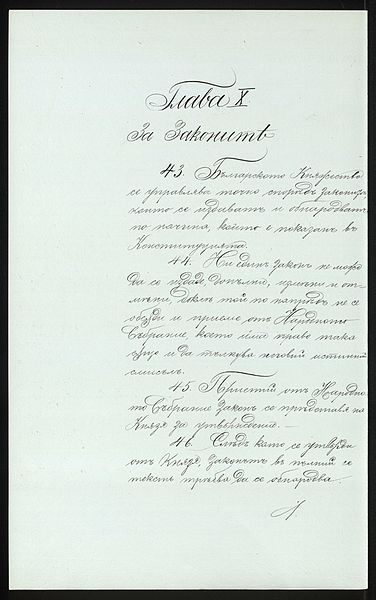 Глава X.
За Законитѣ
43. Българското Княжество
се управлява точно споредъ законитѣ,
които се издаватъ и обнародватъ
по начина, който е показанъ въ
Конституцията.
44. Ни единъ Законъ не може
да се издаде, допълни, измѣни и от-
мѣни, докле той по напредъ не се
обсѫди и приеме отъ Народното
Събрание, което има право така
сѫщо и да тълкува неговий истинний
смисълъ.
45. Приетий отъ Народно-
то Събрание Законъ се представя на
Князя за утвърждение. —
46. Слѣдъ като се утвърди
отъ Князя, Законътъ въ пълний се
текстъ трѣбва да се обнародва.